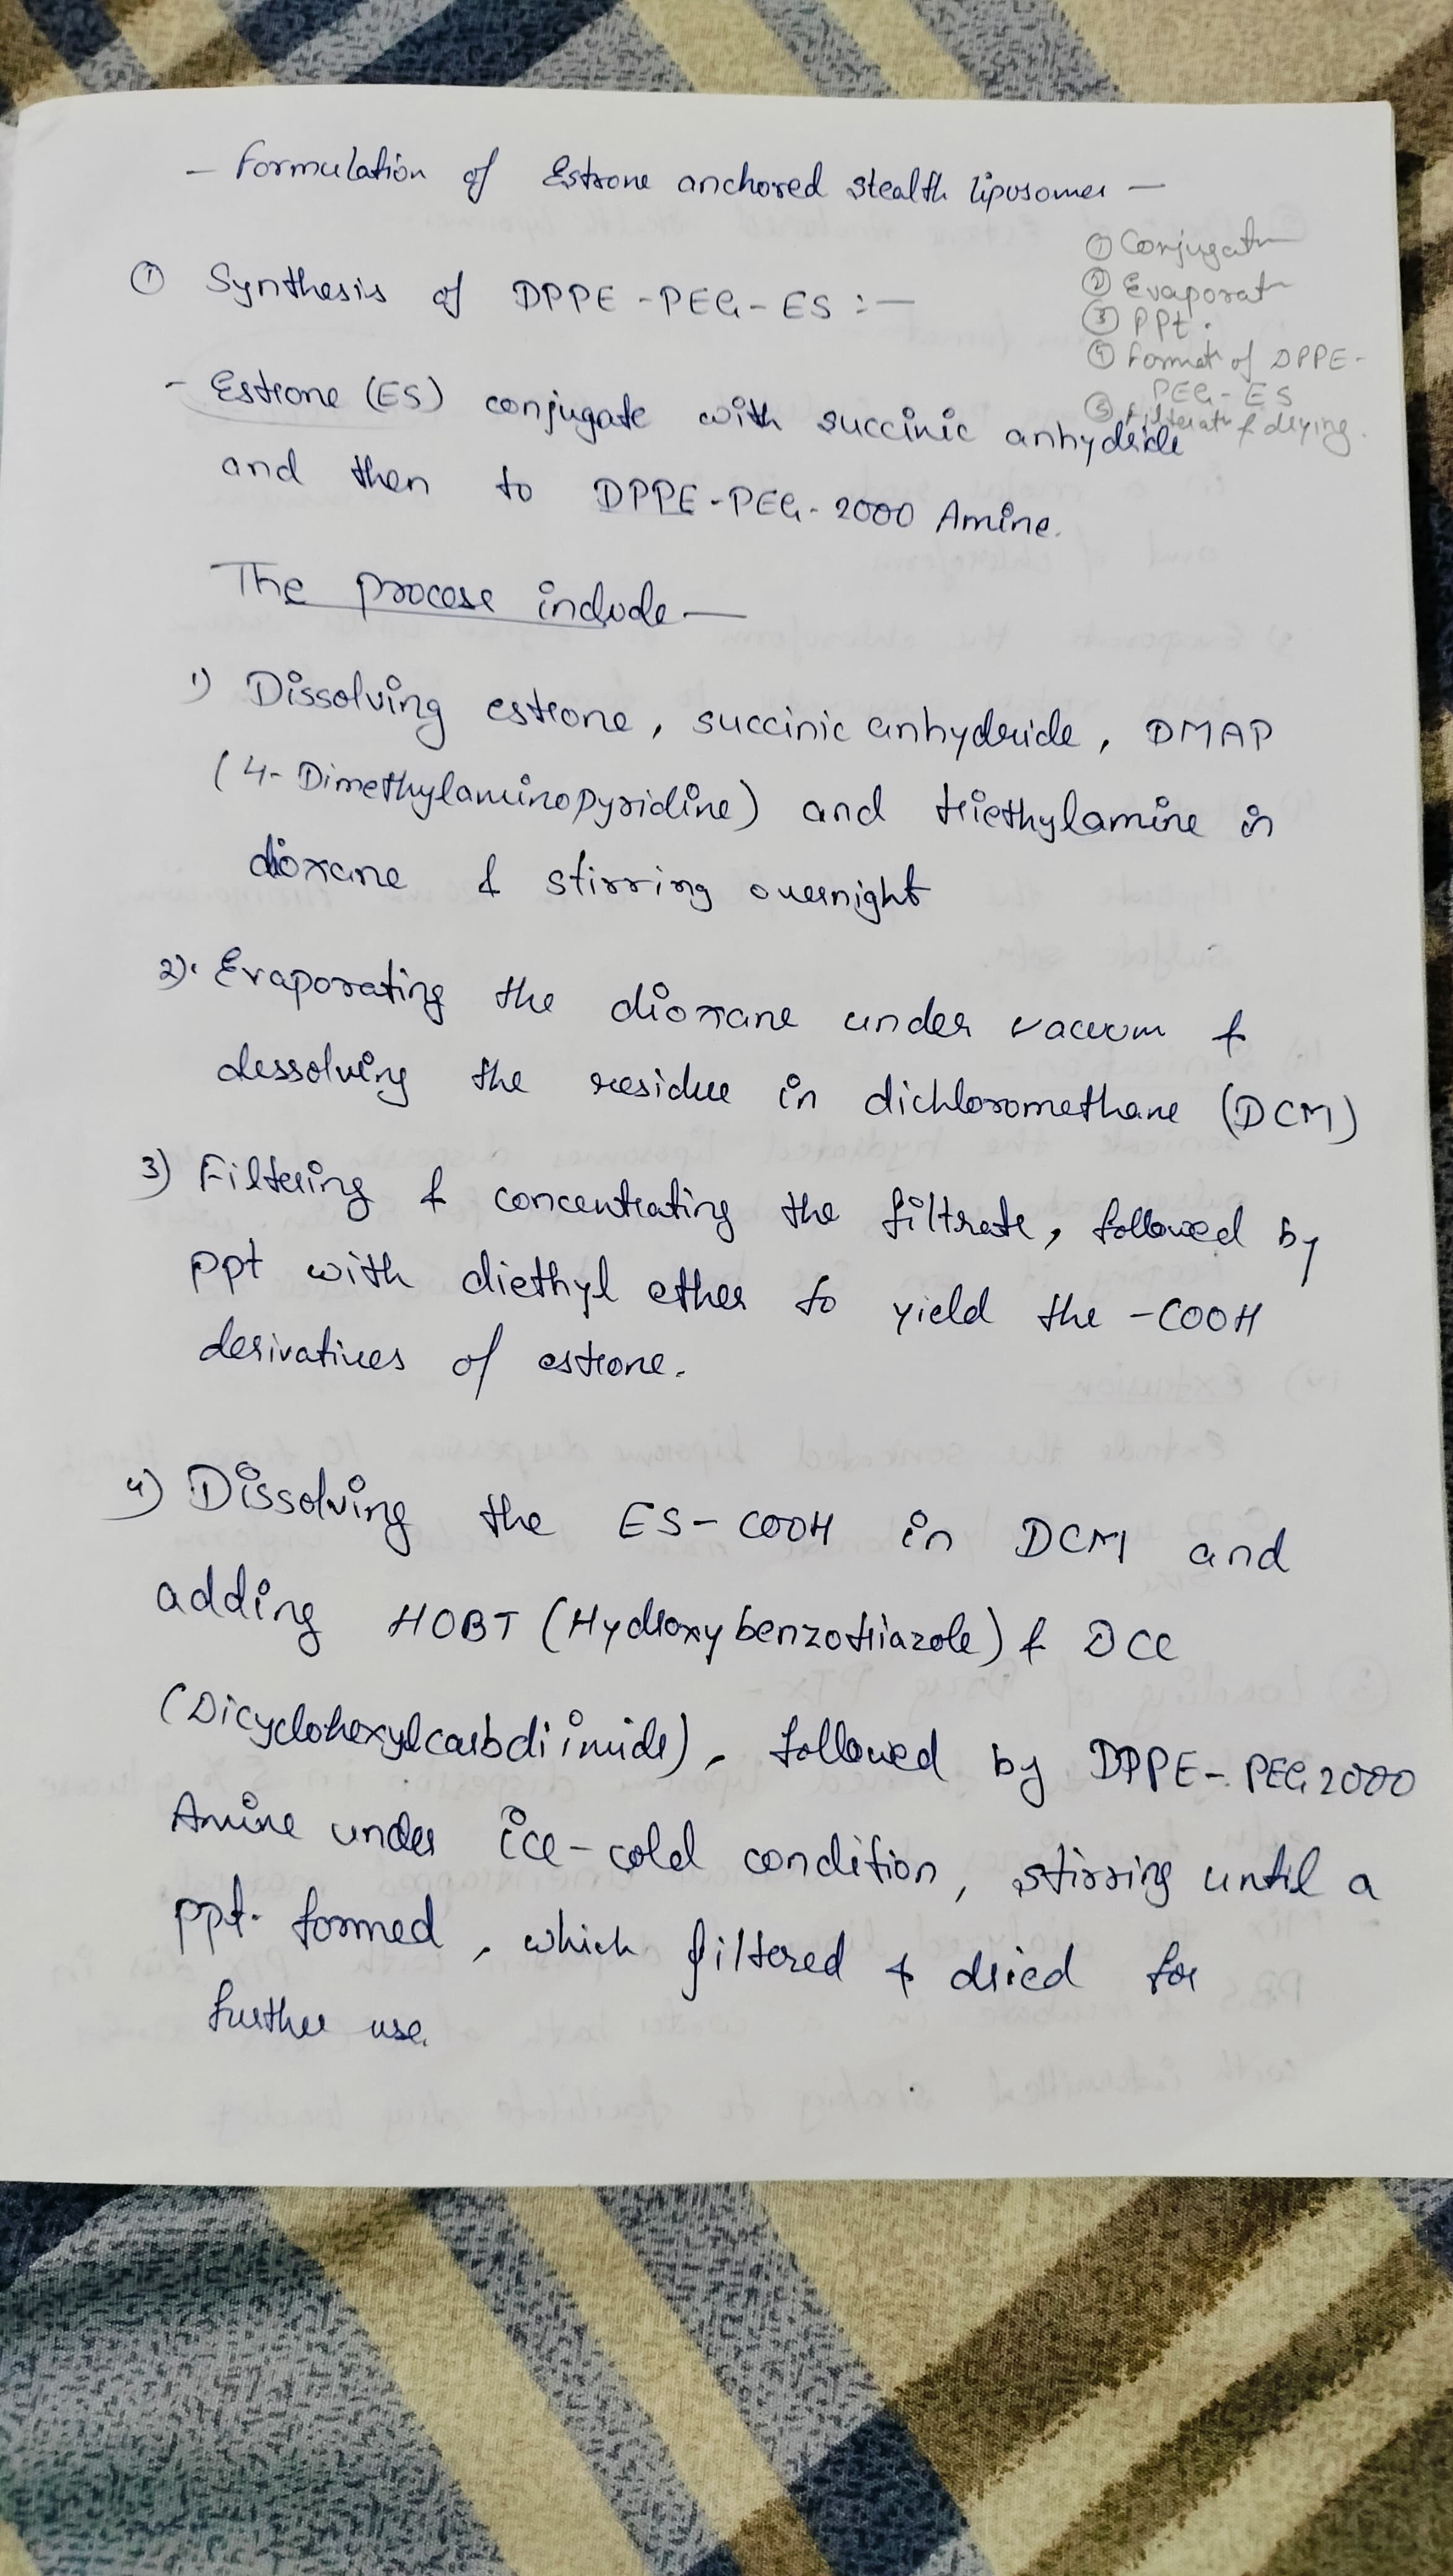 - Formulation of Estrone anchored stealth liposomes -
① Conjugatn
② Evaporatn
③ PPt.
④ Formatn of DPPE-
PEG-ES
⑤ Filteratn & drying.
① Synthesis of DPPE-PEG-ES :-
- Estrone (ES) conjugate with succinic anhydride
and then to DPPE-PEG-2000 Amine.
The process include -
1) Dissolving estrone, succinic anhydride, DMAP
(4-Dimethylaminopyridine) and triethylamine in
dioxane & stirring overnight
2) Evaporating the dioxane under vacuum &
dessolving the residue in dichloromethane (DCM)
3) Filtering & concentrating the filtrate, followed by
ppt with diethyl ether to yield the -COOH
derivatives of estrone.
4) Dissolving the ES-COOH in DCM and
adding HOBT (Hydroxybenzotriazole) & DCC
(Dicyclohexylcarbdiimide), followed by DPPE-PEG2000
Amine under ice-cold condition, stirring until a
ppt. formed, which filtered & dried for
further use.